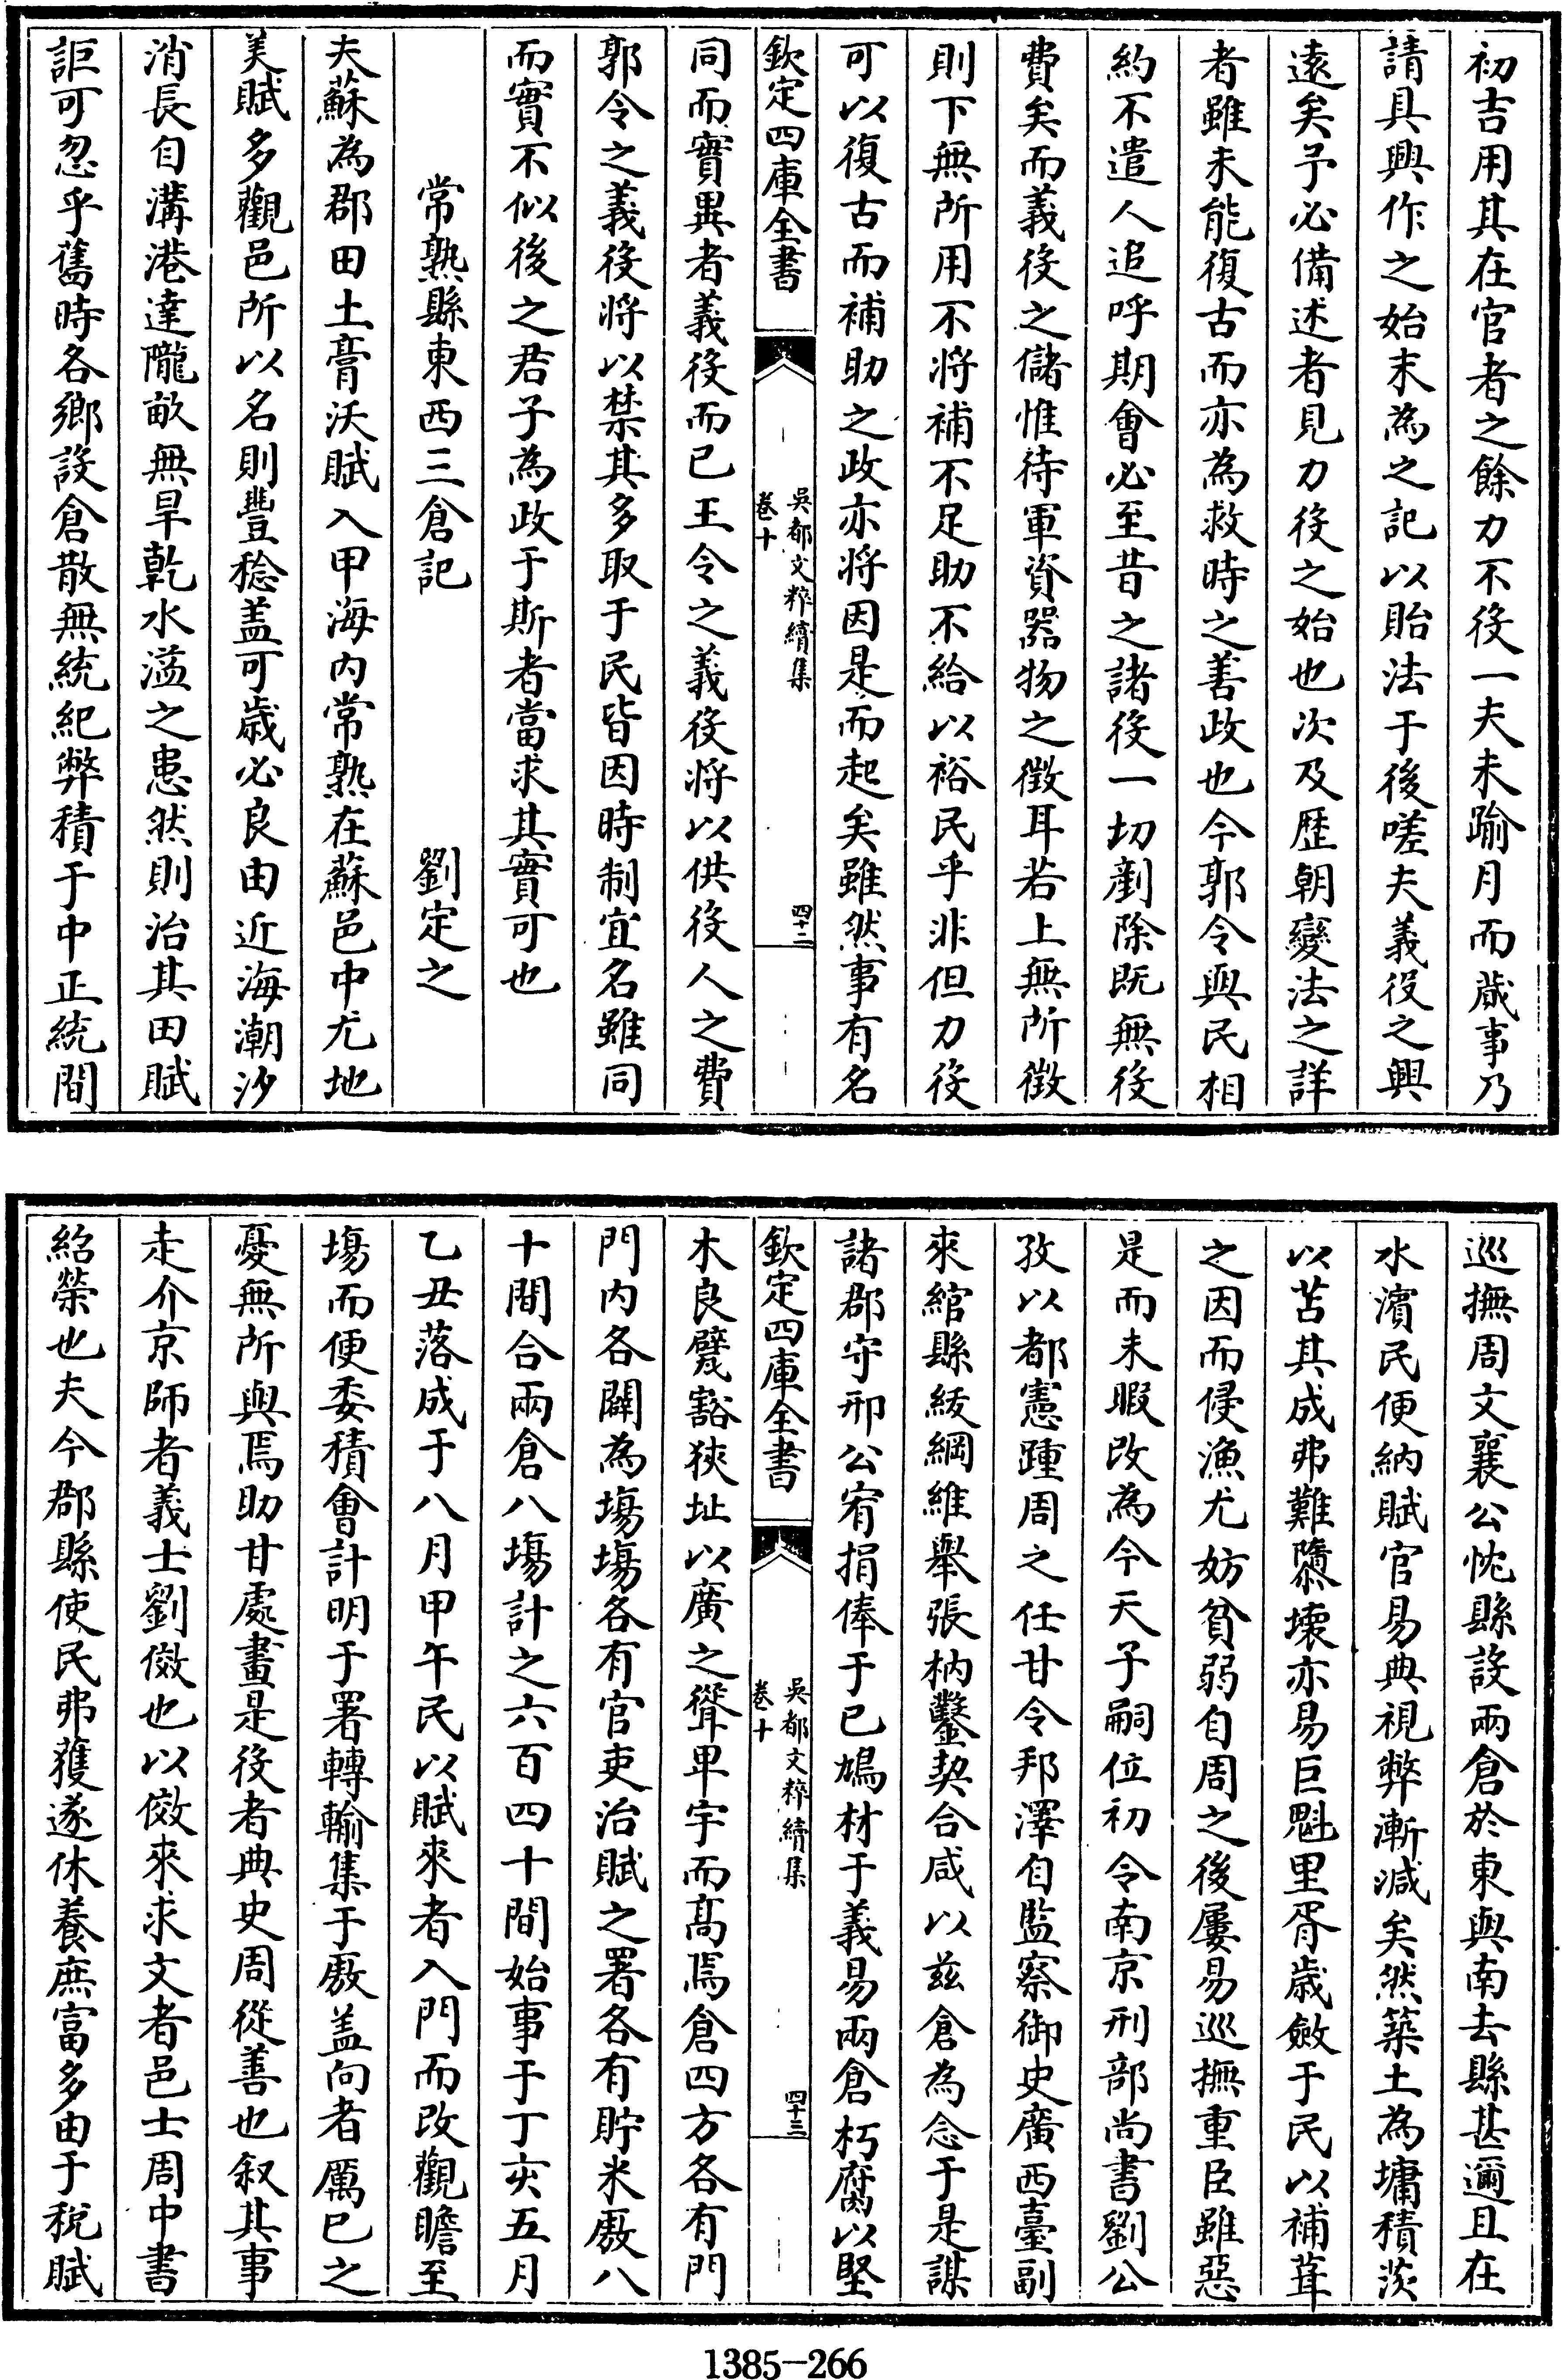 初吉用其在官者之餘力不役一夫未踰月而蕆事乃
請具興作之始末為之記以貽法于後嗟夫義役之興
遠矣予必備述者見力役之始也次及歴朝變法之詳
者雖未能復古而亦為救時之善政也今郭令與民相
約不遣人追呼期會必至昔之諸役一切剷除既無役
費矣而義役之儲惟待軍資器物之徵耳若上無所徵
則下無所用不將補不足助不給以裕民乎非但力役
可以復古而補助之政亦將因是而起矣雖然事有名
欽定四庫全書
吳都文粹續集
卷十
四十二
同而實異者義役而已王令之義役將以供役人之費
郭令之義役將以禁其多取于民皆因時制宜名雖同
而實不似後之君子為政于斯者當求其實可也
常熟縣東西三倉記 劉定之
夫蘇為郡田土膏沃賦入甲海内常熟在蘇邑中尤地
美賦多觀邑所以名則豐稔盖可歲必良由近海潮汐
消長自溝港達隴畝無旱乾水溢之患然則治其田賦
詎可忽乎舊時各鄉設倉散無統紀弊積于中正統間
巡撫周文襄公忱縣設兩倉於東與南去縣甚邇且在
水濱民便納賦官易典視弊漸減矣然築土為墉積茨
以苫其成弗難隳壞亦易巨魁里胥歲斂于民以補葺
之因而侵漁尤妨貧弱自周之後屢易巡撫重臣雖惡
是而未暇改為今天子嗣位初令南京刑部尚書劉公
孜以都憲踵周之任甘令邦澤自監察御史廣西臺副
來綰縣綬綱維舉張枘鑿契合咸以兹倉為念于是謀
諸郡守邢公宥捐俸于已鳩材于義易兩倉朽腐以堅
欽定四庫全書
吳都文粹續集
卷十
四十三
木良甓豁狹址以廣之聳卑宇而髙焉倉四方各有門
門内各闢為塲塲各有官吏治賦之署各有貯米廒八
十間合兩倉八塲計之六百四十間始事于丁亥五月
乙丑落成于八月甲午民以賦來者入門而改觀瞻至
塲而便委積會計明于署轉輸集于廒盖向者厲已之
憂無所與焉助甘處畫是役者典史周從善也叙其事
走介京師者義士劉傚也以傚來求文者邑士周中書
紹榮也夫今郡縣使民弗獲遂休養庶富多由于稅賦
1385-266